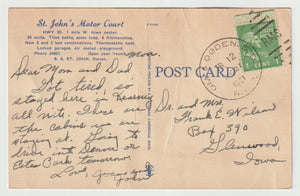 St. John's Motor Court
HWY 30. 1 mile W. town center.
20 units. Tiled baths, some tubs, 6 Kitchenettes.
New 2 and 3 bed combinations. Thermostatic heat.
Locked garages, air cooled playground.
Phone Open year 'round.
R. S. ST. JOHN, Owner.
Mon.
Dear Mom and Dad
Got tired, so
stayed here in Kearney
all nite. These are
the cabins we are
staying at. Going to
drive into Denver or
Estes Park tomorrow.
Love,
John
POST CARD
OGDEN
12
1 CENT 1
Dr. and Mrs.
Frank E. Wilson
Box 390
Glenwood,
Iowa